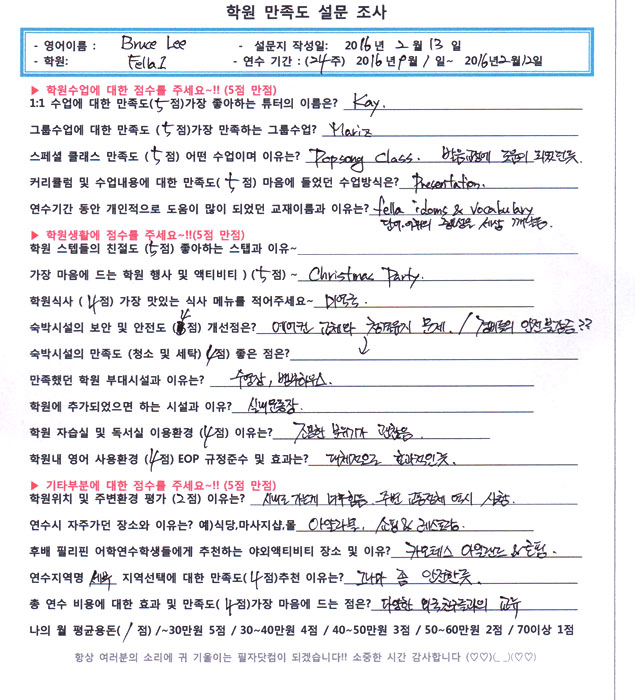 학원 만족도 설문 조사
- 영어이름 : Bruce Lee - 설문지 작성일: 2016년 2월 13일
- 학원: Fella1 - 연수 기간 : (24주) 2016년 9월 1일~ 2016년2월12일
▶ 학원수업에 대한 점수를 주세요~!! (5점 만점)
1:1 수업에 대한 만족도(5점)가장 좋아하는 튜터의 이름은? Kay.
그룹수업에 대한 만족도 (5점)가장 만족하는 그룹수업? Mariz
스페셜 클래스 만족도 (5점) 어떤 수업이며 이유는? Popsong Class. 발음교정에 도움이 되었던듯.
커리큘럼 및 수업내용에 대한 만족도(5점) 마음에 들었던 수업방식은? Presentation.
연수기간 동안 개인적으로 도움이 많이 되었던 교재이름과 이유는? fella idoms & vocabulary
단어.어휘의 중요성을 새삼 깨달음.
▶ 학원생활에 점수를 주세요~!!(5점 만점)
학원 스텝들의 친절도 (5점) 좋아하는 스탭과 이유~
가장 마음에 드는 학원 행사 및 액티비티 ) (5점) ~ Christmas Party.
학원식사 (4점) 가장 맛있는 식사 메뉴를 적어주세요~ 미역국.
숙박시설의 보안 및 안전도 (4점) 개선점은? 에어컨 문제. / 안전불감증??
숙박시설의 만족도 (청소 및 세탁) (4점) 좋은 점은?
만족했던 학원 부대시설과 이유는? 수영장,
학원에 추가되었으면 하는 시설과 이유? 실내운동장.
학원 자습실 및 독서실 이용환경 (4점) 이유는? 조용한 분위기가 괜찮음.
학원내 영어 사용환경 (4점) EOP 규정준수 및 효과는? 대체적으로 효과적인듯.
▶ 기타부분에 대한 점수를 주세요~!! (5점 만점)
학원위치 및 주변환경 평가 (2점) 이유는? 시내로 가는게 너무힘듬. 주변 교통전체 역시
연수시 자주가던 장소와 이유는? 예)식당,마사지샵,몰 아얄라몰, 쇼핑 & 레스토랑.
후배 필리핀 어학연수학생들에게 추천하는 야외액티비티 장소 및 이유? 카모테스 아일랜드 & 호핑.
연수지역명 세부 지역선택에 대한 만족도(4점)추천 이유는? 그나마 좀 안전한듯.
총 연수 비용에 대한 효과 및 만족도(4점)가장 마음에 드는 점은? 다양한 외국친구들과의 교류
나의 월 평균용돈(1점) /~30만원 5점 / 30~40만원 4점 / 40~50만원 3점 / 50~60만원 2점 / 70이상 1점
항상 여러분의 소리에 귀 기울이는 필자닷컴이 되겠습니다!! 소중한 시간 감사합니다 (♡♡)(_ _)(♡♡)